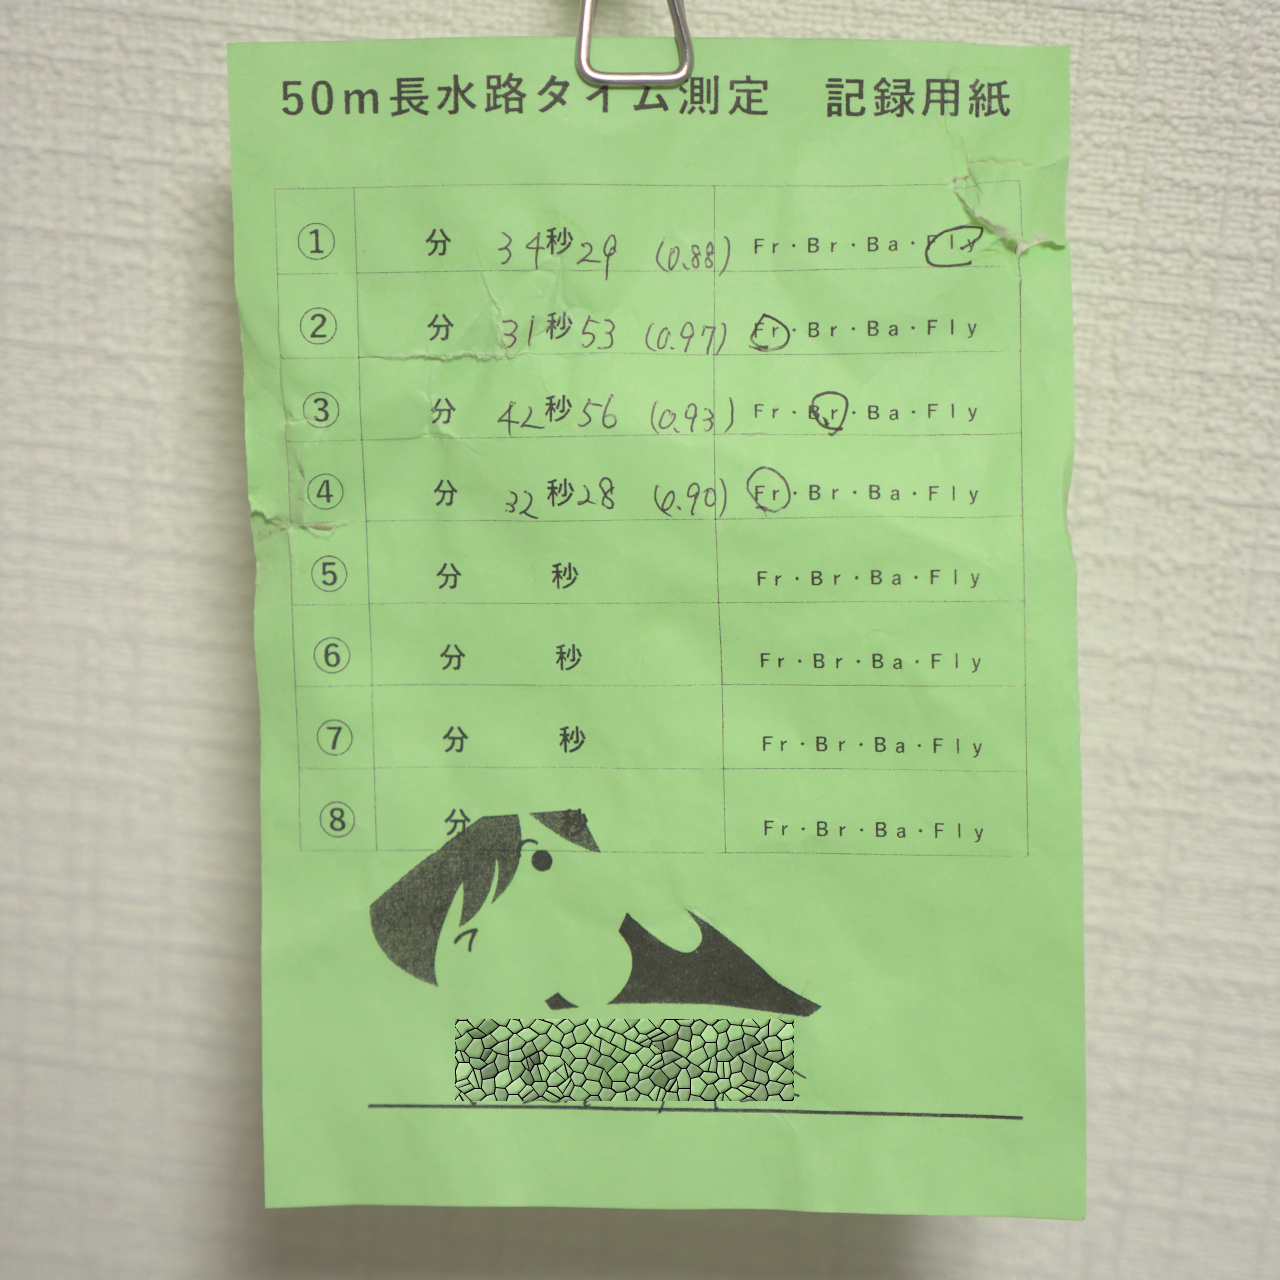 50m長水路タイム測定　記録用紙
① 分 34秒29 (0.88) Fr・Br・Ba・Fly
② 分 31秒53 (0.97) Fr・Br・Ba・Fly
③ 分 42秒56 (0.93) Fr・Br・Ba・Fly
④ 分 32秒28 (0.90) Fr・Br・Ba・Fly
⑤ 分 秒 Fr・Br・Ba・Fly
⑥ 分 秒 Fr・Br・Ba・Fly
⑦ 分 秒 Fr・Br・Ba・Fly
⑧ 分 秒 Fr・Br・Ba・Fly